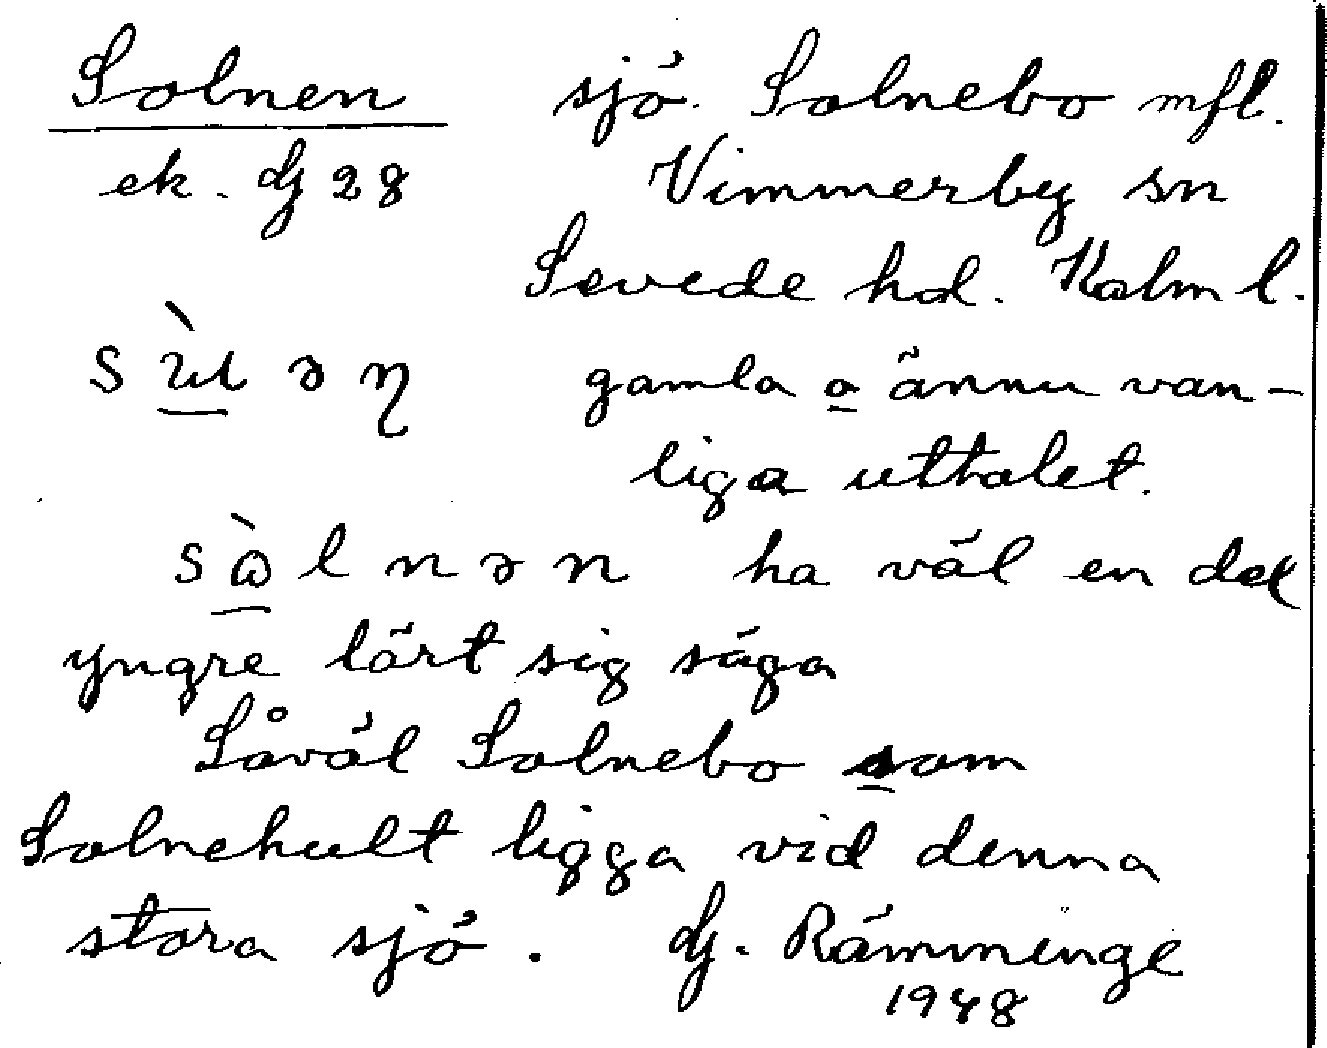 Solnen sjö. Solnebo mfl.
ek. dj 28 Vimmerby sn
Sevede hd. Kalm l.
gamla o ännu van-
liga uttalet.
sɷ̀lnən ha väl en del
yngre lärt sig säga
Såväl Solnebo som
Solnehult ligga vid denna
stora sjö. dj. Rämminge
1948